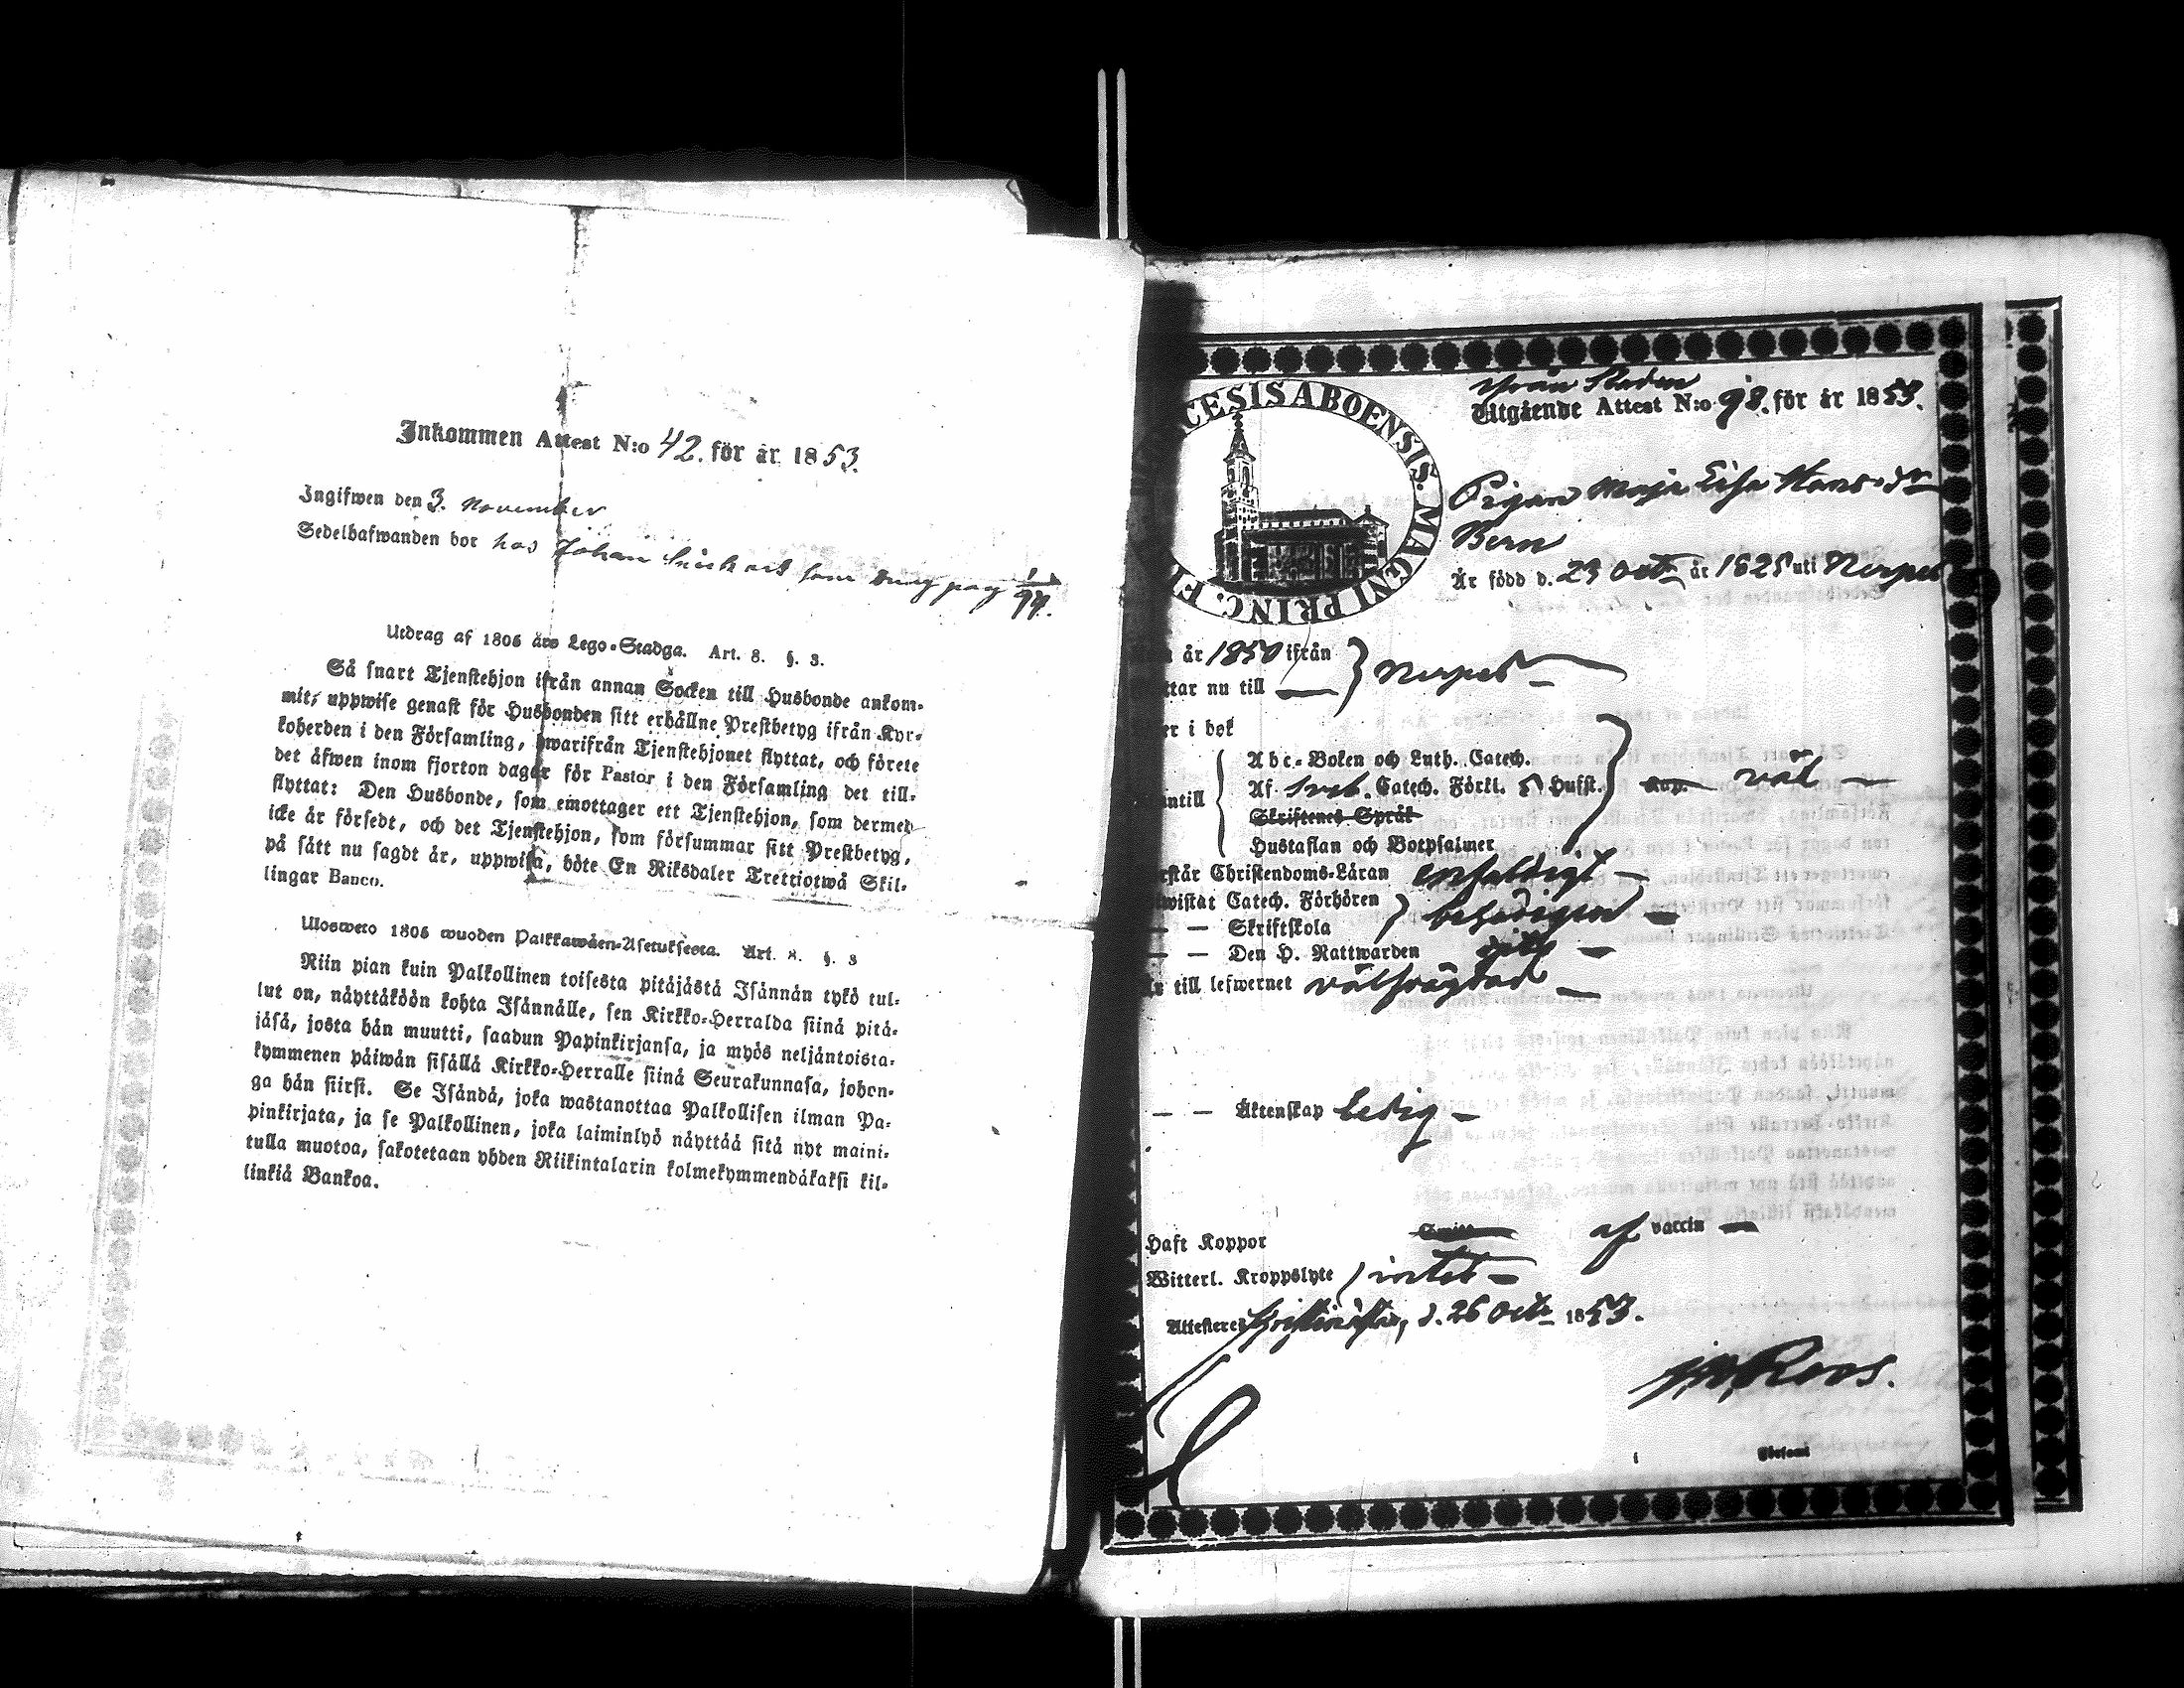 Inkommen Attest N:o 42. för år 1853.
Ingifwen den 3. November
Sedelhafwanden bor hos Johan som pag 1/94.
Utdrag af 1805 års Lego-Stadga. Art. 8. §. 3.
Så snart Tjenstehjon ifrån annan Socken till Husbonde ankom-
mit, uppwise genast för Husbonden sitt erhållne Prestbetyg ifrån Kyr-
koherden i den Församling, hwarifrån Tjenstehjonet flyttat, och förete
det äfwen inom fjorton dagar för Pastor i den Församling det till-
flyttat: Den Husbonde, som emottager ett Tjenstehjon, som dermed
icke är försedt, och det Tjenstehjon, som försummar sitt Prestbetyg,
på sätt nu sagdt är, uppwisa, böte En Riksdaler Trettiotwå Skil-
lingar Banco.
Ulosweto 1805 wuoden Palkkawäen-Asetuksesta. Art. 8. §. 3
Niin pian kuin Palkollinen toisesta pitäjästä Isännän tykö tul-
lut on, näyttäköön kohta Isännälle, sen Kirkko-Herralda siinä pitä-
jäsä, josta hän muutti, saadun Papinkirjansa, ja myös neljäntoista-
kymmenen päiwän sisällä Kirkko-Herralle siinä Seurakunnasa, johon-
ga hän siirsi. Se Isändä, joka wastanottaa Palkollisen ilman Pa-
pinkirjata, ja se Palkollinen, joka laiminlyö näyttää sitä nyt maini-
tulla muotoa, sakotetaan yhden Riikintalarin kolmekymmendäkaksi kil-
linkiä Bankoa.
CESIS ABOENSIS. MAGNI PRINC. F
ifrån Staden
Utgående Attest N:o 98. för år 1853.
Pigan Maja Lisa Hansdr
Bern
Är född d. 23 Octr år 1825 uti Nerpes
år 1850 ifrån
ttar nu till — } Nerpes —
er i bok
Abc-Boken och Luth. Catech.
ntill Af Sveb. Catech. Förkl. o Husst. väl —
Skriftenes Språk
Hustaflan och Botpsalmer
rstår Christendoms-Läran enfaldigt —
wistat Catech. Förhören
— — Skriftskola } behörigen —
— — Den H. Nattwarden —
till lefwernet välfrägdad —
— — Äktenskap ledig —
Haft Koppor af vaccin —
Witterl. Kroppslyte ) intet —
Attesteres Kristinestad, d. 26 Octr 1853.
Roos.
Församl